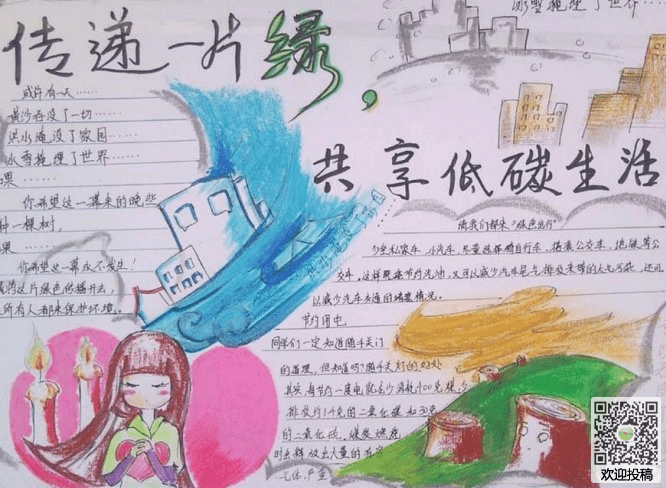 传递一片绿，
共享低碳生活
冰雪掩埋了世界……
或许有一天……
黄沙吞没了一切……
洪水淹没了家园……
冰雪掩埋了世界……
果……
你希望这一幕来的晚些
种一棵树，
果……
你希望这一幕永不发生！
这片绿色传播开去，
所有人都来保护环境。
请我们都来“绿色出行”
少坐私家车、小汽车，尽量选择骑自行车、搭乘公交车、地铁等公
交车。这样既能节约汽油，又可以减少汽车尾气排放带来的大气污染，还可
以减少汽车交通的堵塞情况。
节约用电
同学们一定知道随手关门
的道理，但知道吗？随手关灯的好处
其实每节约一度电就会少消耗400克煤，少
排放约1千克的二氧化碳和30克
的二氧化硫。煤炭燃烧
时会释放出大量的有害
气体，严重
欢迎投稿